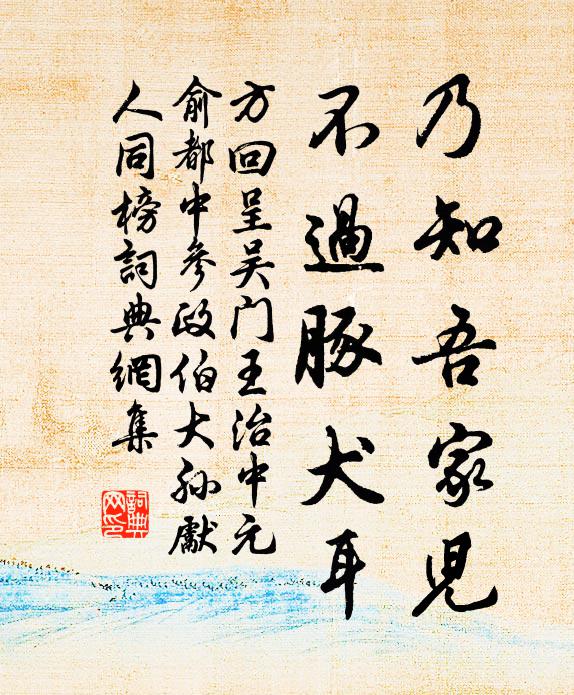 乃知吾家児
不過豚犬耳
方回呈吴门王治中元
俞都中参政伯大孙獻
人同榜詞典網集
詞典
网印